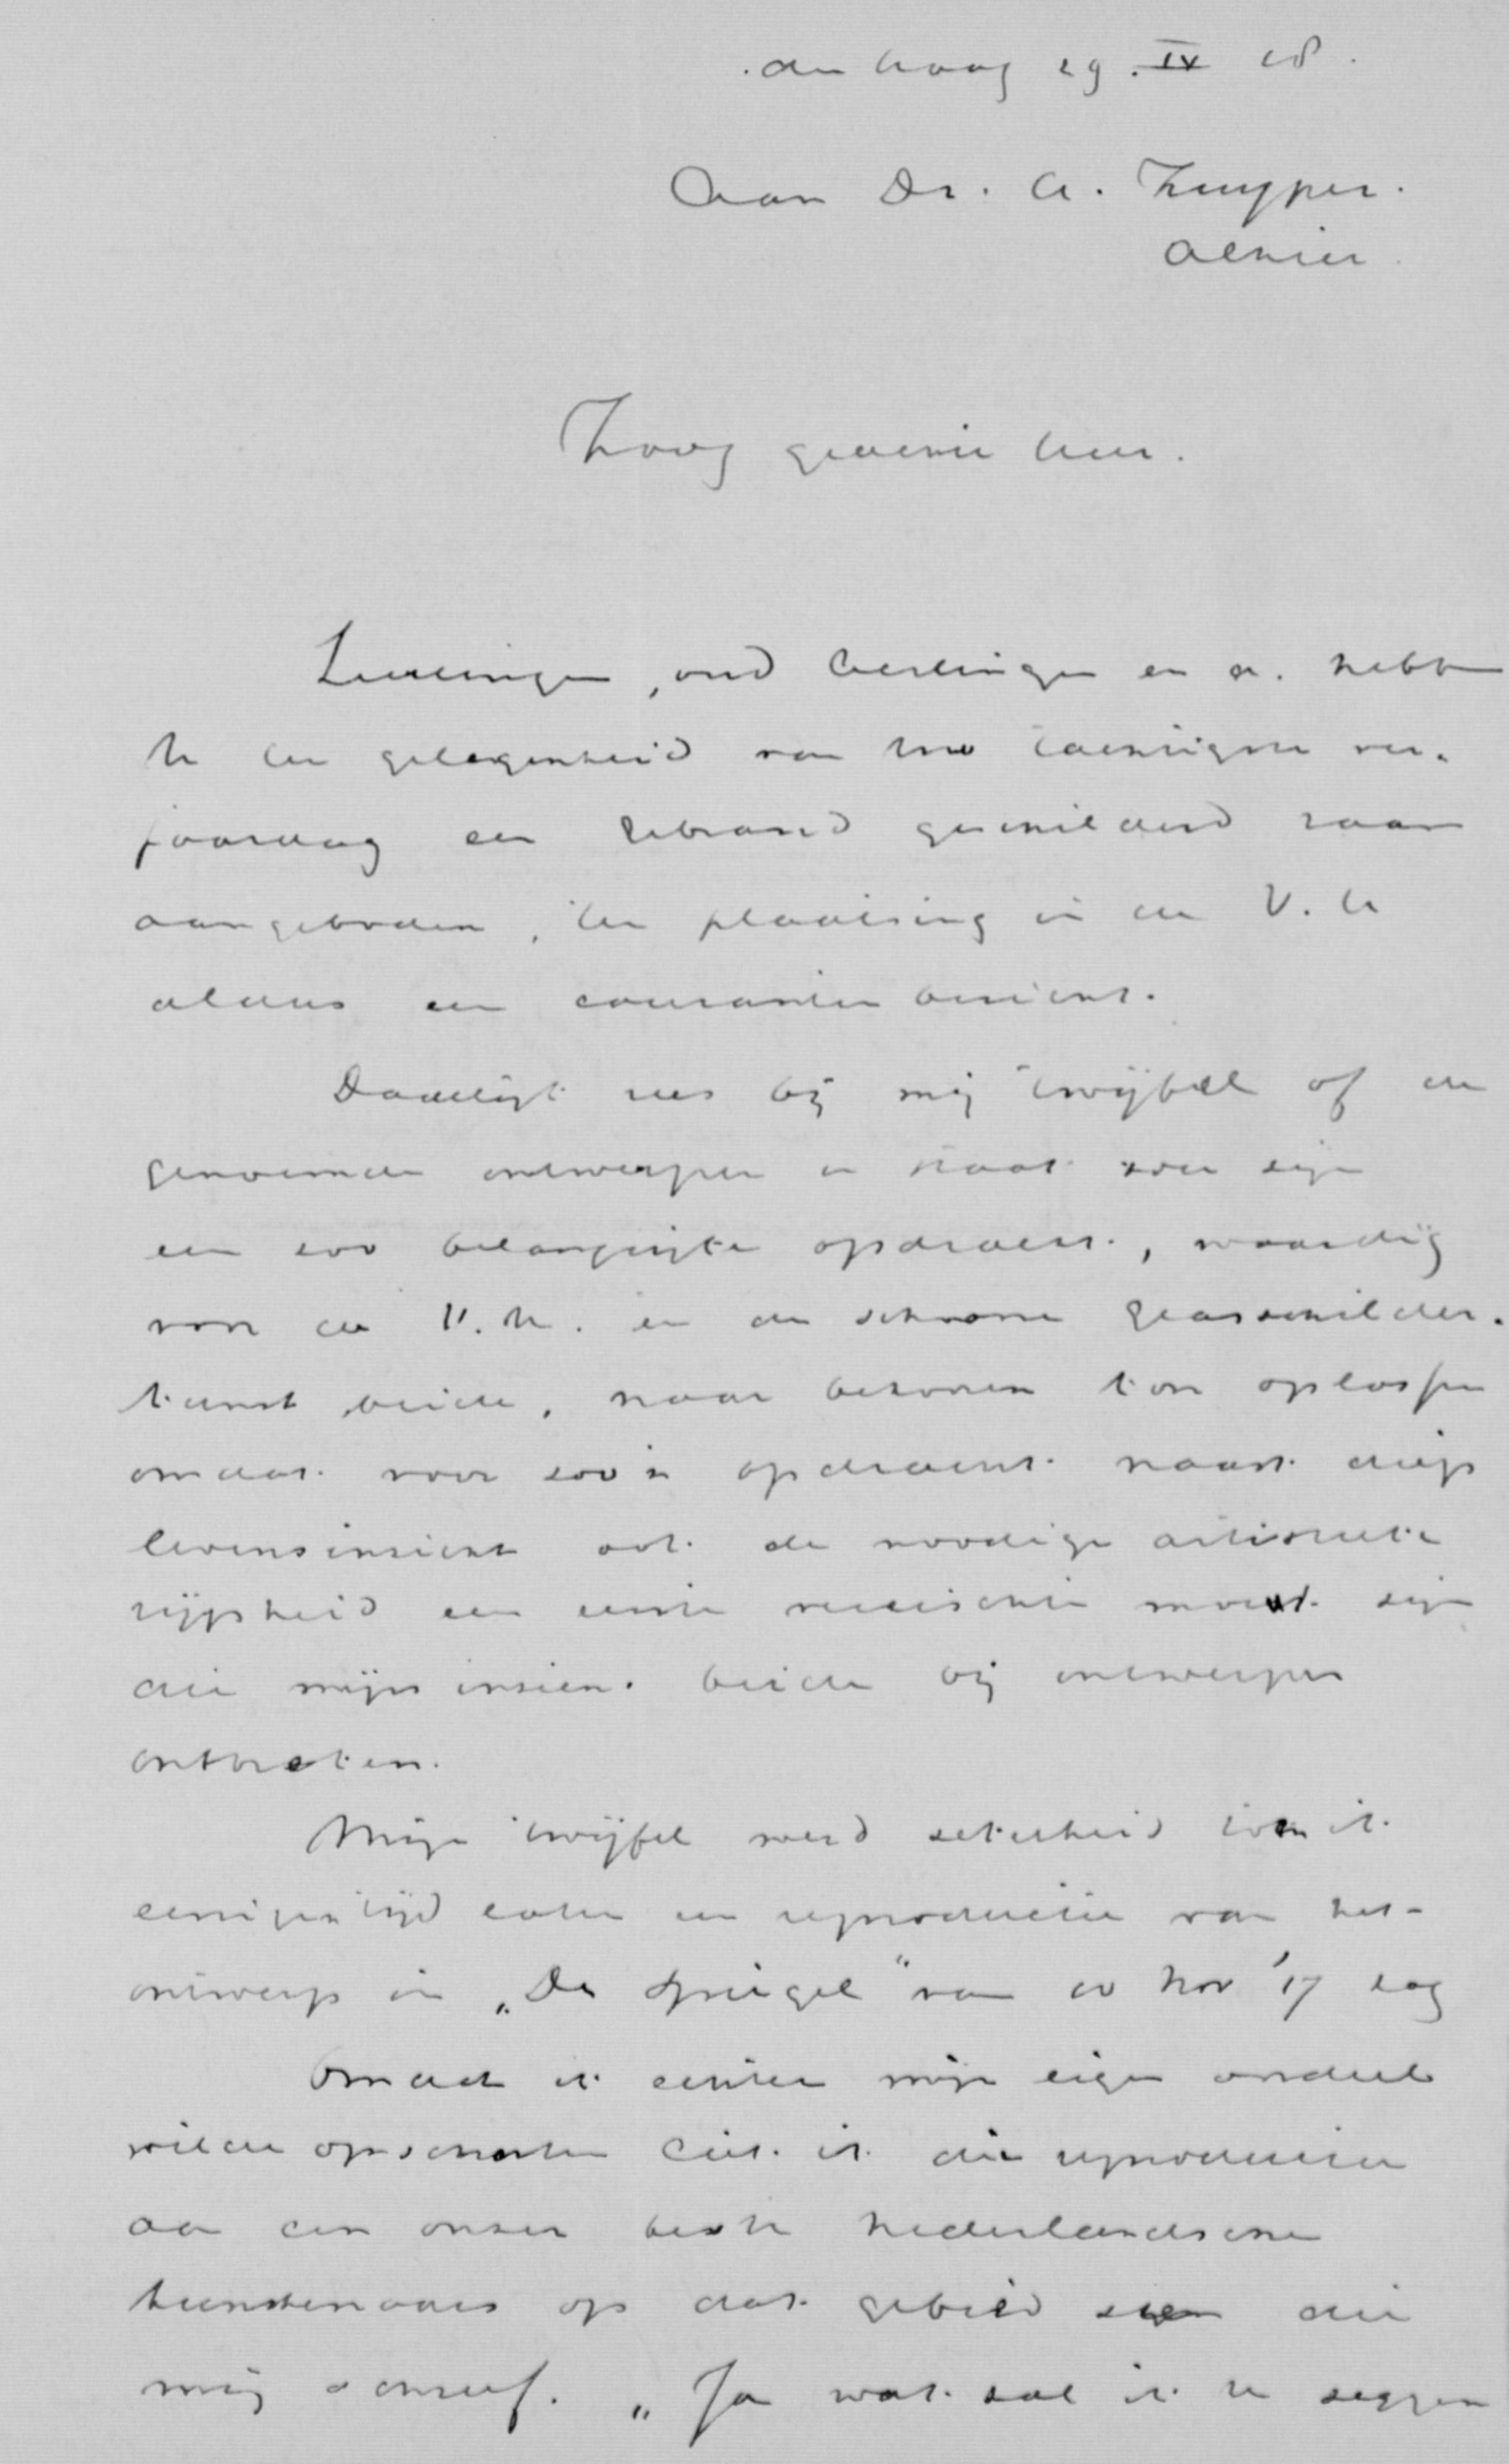 den haag 29. IV 18.
Aan Dr. A. Kuyper.
alhier.
Hoog geachte heer.
Leerlingen, oud leerlingen en a. hebben
U ter gelegenheid van Uw tachtigste ver-
jaardag een gebrand geschilderd raam
aangeboden, ter plaatsing in de V. U
aldus een couranten bericht.
Dadelijk rees bij mij twijfel of de
genoemde ontwerper in staat zou zijn
een zoo belangrijke opdracht, waardig
van de V. U. en de schoone glasschilder.
kunst beide, naar behooren kon oplossen
omdat voor zoo'n opdracht naast diep
levensinzicht ook de noodige artistieke
rijpheid een eerste vereischte moest zijn
die mijns inziens beide bij ontwerper
ontbreken.
Mijn twijfel werd zekerheid toen ik
eenigen tijd later een reproductie van het
ontwerp in „De Spiegel" van Nov '17 zag
Omdat ik echter mijn eigen oordeel
wilde opschorten liet ik die reproductie
aan een onzer beste Nederlandsche
kunstenaars op dat gebied zien die
mij schreef. „Ja wat zal ik U zeggen